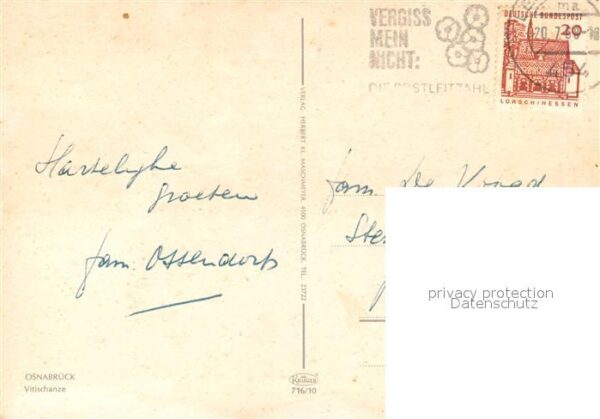 VERGISS
MEIN
NICHT:
DIE POSTLEITZAHL
DEUTSCHE BUNDESPOST
20
LORSCH/HESSEN
Hartelijke
groeten
fam. Ossendorp
fam. De
Ste
VERLAG HERBERT KL. MASCHMEYER, 4500 OSNABRÜCK, TEL. 23722
OSNABRÜCK
Vitischanze
KRÜGER
716/10
privacy protection
Datenschutz